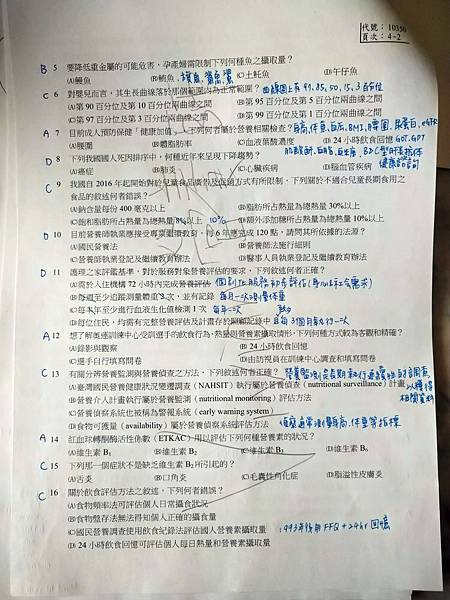 代號：10350
頁次：4-2
B 5 要降低重金屬的可能危害，孕產婦需限制下列何種魚之攝取量？
(A)鰻魚 (B)鮪魚 (C)土魠魚 (D)午仔魚
C 6 對嬰兒而言，其生長曲線落於那個範圍內為正常範圍？ 曲線圖上有97,85,50,15,3百分位
(A)第 90 百分位及第 10 百分位兩曲線之間 (B)第 95 百分位及第 5 百分位兩曲線之間
(C)第 97 百分位及第 3 百分位兩曲線之間 (D)第 99 百分位及第 1 百分位兩曲線之間
A 7 目前成人預防保健「健康加值」，下列何者屬於營養相關檢查？
(A)腰圍 (B)體脂肪率 (C)血液葉酸濃度 (D) 24 小時飲食回憶 GOT.GPT
D 8 下列我國國人死因排序中，何種近年來呈現下降趨勢？
(A)癌症 (B)肺炎 (C)心臟疾病 (D)腦血管疾病 健康諮詢
C 9 我國自 2016 年起開始對於兒童食品廣告及促銷方式有所限制，下列關於不適合兒童長期食用之
食品的敘述何者錯誤？
(A)鈉含量每份 400 毫克以上 (B)脂肪所占熱量為總熱量 30%以上
(C)飽和脂肪所占熱量為總熱量 8%以上 10% (D)額外添加糖所占熱量為總熱量 10%以上
D 10 目前營養師執業應接受專業繼續教育，每 6 年應完成 120 點，請問其所依據的法源？
(A)國民營養法 (B)營養師法施行細則
(C)營養師執業登記及繼續教育辦法 (D)醫事人員執業登記及繼續教育辦法
D 11 護理之家評鑑基準，對於服務對象營養評估的要求，下列敘述何者正確？
(A)需於入住機構 72 小時內完成營養評估
(B)每週至少追蹤測量體重 2 次，並有記錄 每月一次測量体重
(C)每半年至少進行血液生化值檢測 1 次 每年一次
(D)每位住民，均需有完整營養評估及計畫存於照顧記錄中 且每3個月執行一次
A 12 想了解奧運訓練中心受訓選手的飲食行為、熱量與營養素攝取情形，下列何種方式較為客觀和精確？
(A)錄影與觀察 (B) 24 小時飲食回顧
(C)選手自行填寫問卷 (D)由訪視員在訓練中心調查和填寫問卷
C 13 有關分辨營養監測與營養偵查之方法，下列敘述何者正確？
(A)臺灣國民營養健康狀況變遷調查（NAHSIT）執行屬於營養偵查（nutritional surveillance）計畫
(B)營養介入計畫執行屬於營養監測（nutritional monitoring）評估方法
(C)營養偵察系統也被稱為警報系統（early warning system）
(D)食物可獲量（availability）屬於營養偵察系統評估方法
A 14 紅血球轉酮酶活性係數（ETKAC）用以評估下列何種營養素的狀況？
(A)維生素 B₁ (B)維生素 B₂ (C)維生素 B₃ (D)維生素 B₆
C 15 下列那一個症狀不是缺乏維生素 B₂所引起的？
(A)舌炎 (B)口角炎 (C)毛囊性角化症 (D)脂溢性皮膚炎
C 16 關於飲食評估方法之敘述，下列何者錯誤？
(A)食物頻率法可評估個人日常攝食狀況
(B)食物盤存法無法得知個人正確的攝食量
(C)國民營養調查使用飲食紀錄法評估國人營養素攝取量 1993年後用 FFQ + 24hr 回憶
(D) 24 小時飲食回憶可評估個人每日熱量和營養素攝取量